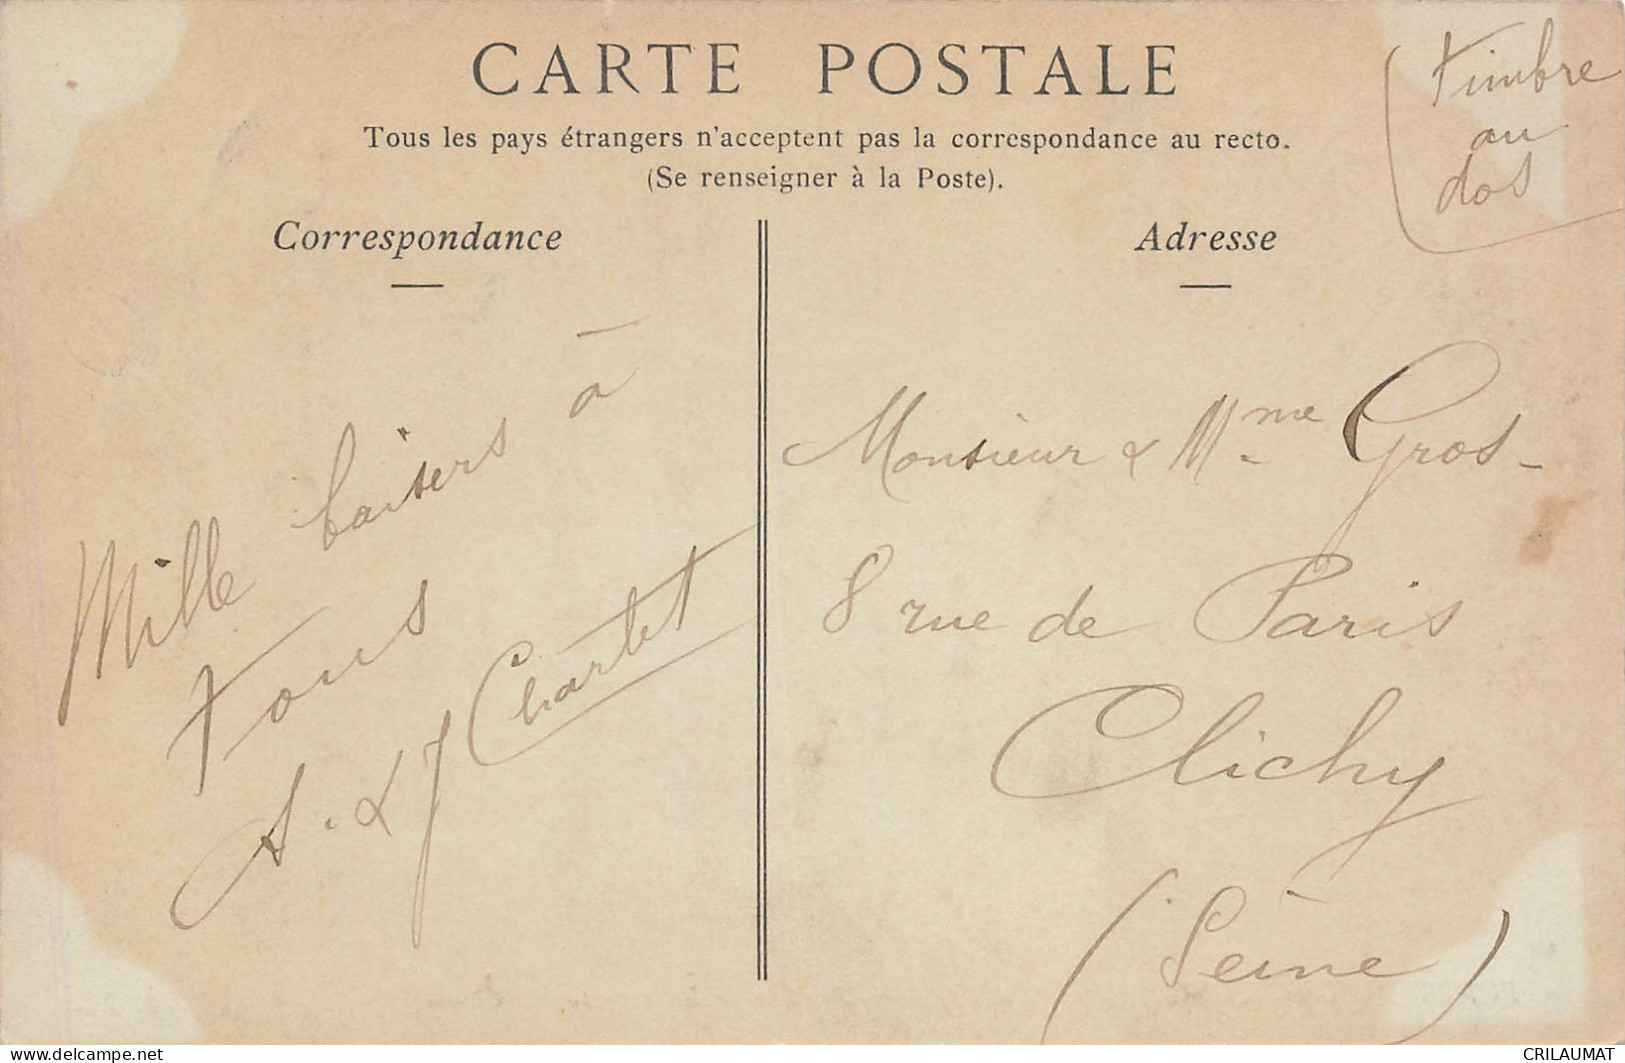 CARTE POSTALE
Tous les pays étrangers n'acceptent pas la correspondance au recto.
(Se renseigner à la Poste).
Timbre
au
dos
Correspondance
Mille baisers à
Tous
A. & J Charlet
Adresse
Monsieur & Mme Gros-
8 rue de Paris
Clichy
(Seine)
www.delcampe.net
CRILAUMAT